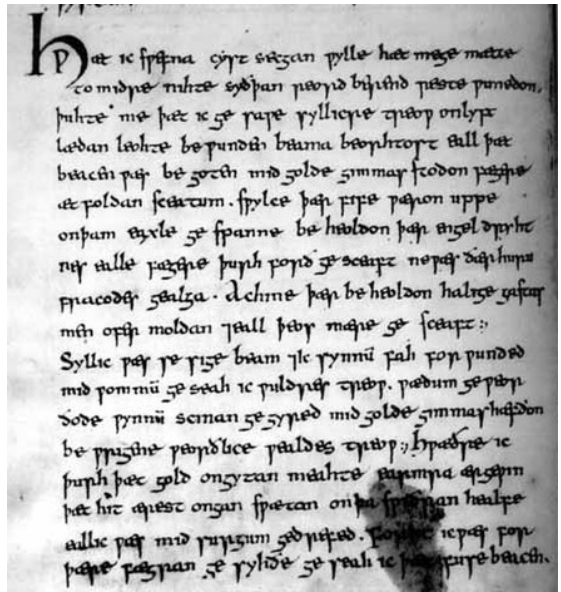 Hƿæt ic ſƿefna cyſt secgan ƿylle hæt mege mætte
to midre nihte syðþan reord berend reste ƿunedon.
þuhte me þæt ic ge saƿe syllicre treoƿ onlyft
lædan leohte be ƿunden beama beorhtost eall þæt
beacen ƿæs be goten mid golde gimmas ſtodon fægere
æt foldan ſceatum. sƿylce þær fife ƿæron uppe
onþam eaxle ge ſpanne be heoldon þær engel dryht
nes ealle fægere þurh forð ge sceaft ne ƿæs ðær huru
fracodes gealga. Ac hine þær be heoldon halige gastas
men ofer moldan ⁊ eall þeos mære ge ſceaft :,
Syllic ƿæs se sige beam ⁊ ic synnū fah for ƿunded
mid ƿommū ge seah ic ƿuldres treoƿ. ƿædum ge ƿeor
ðode ƿynnū scinan ge gyred mid golde gimmas hæfdon
be ƿrigene ƿeorðlice ƿealdes treoƿ :, Hƿæðre ic
þurh þæt gold ongytan meahte earmra ærgeƿin
þæt hit ærest ongan sƿætan on þa sƿiðran healfe
eall ic ƿæs mid surgum gedrefed. forht ic ƿæs for
þære fægran ge syhðe ge seah ic þæt fuse beacen.